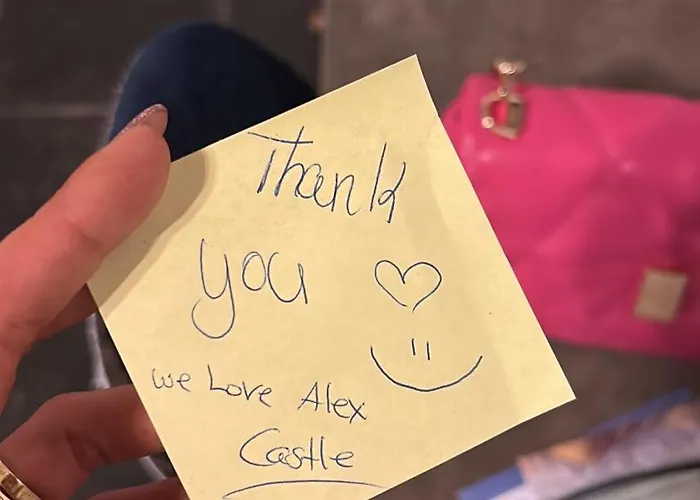 Thank
you
we Love Alex
Castle